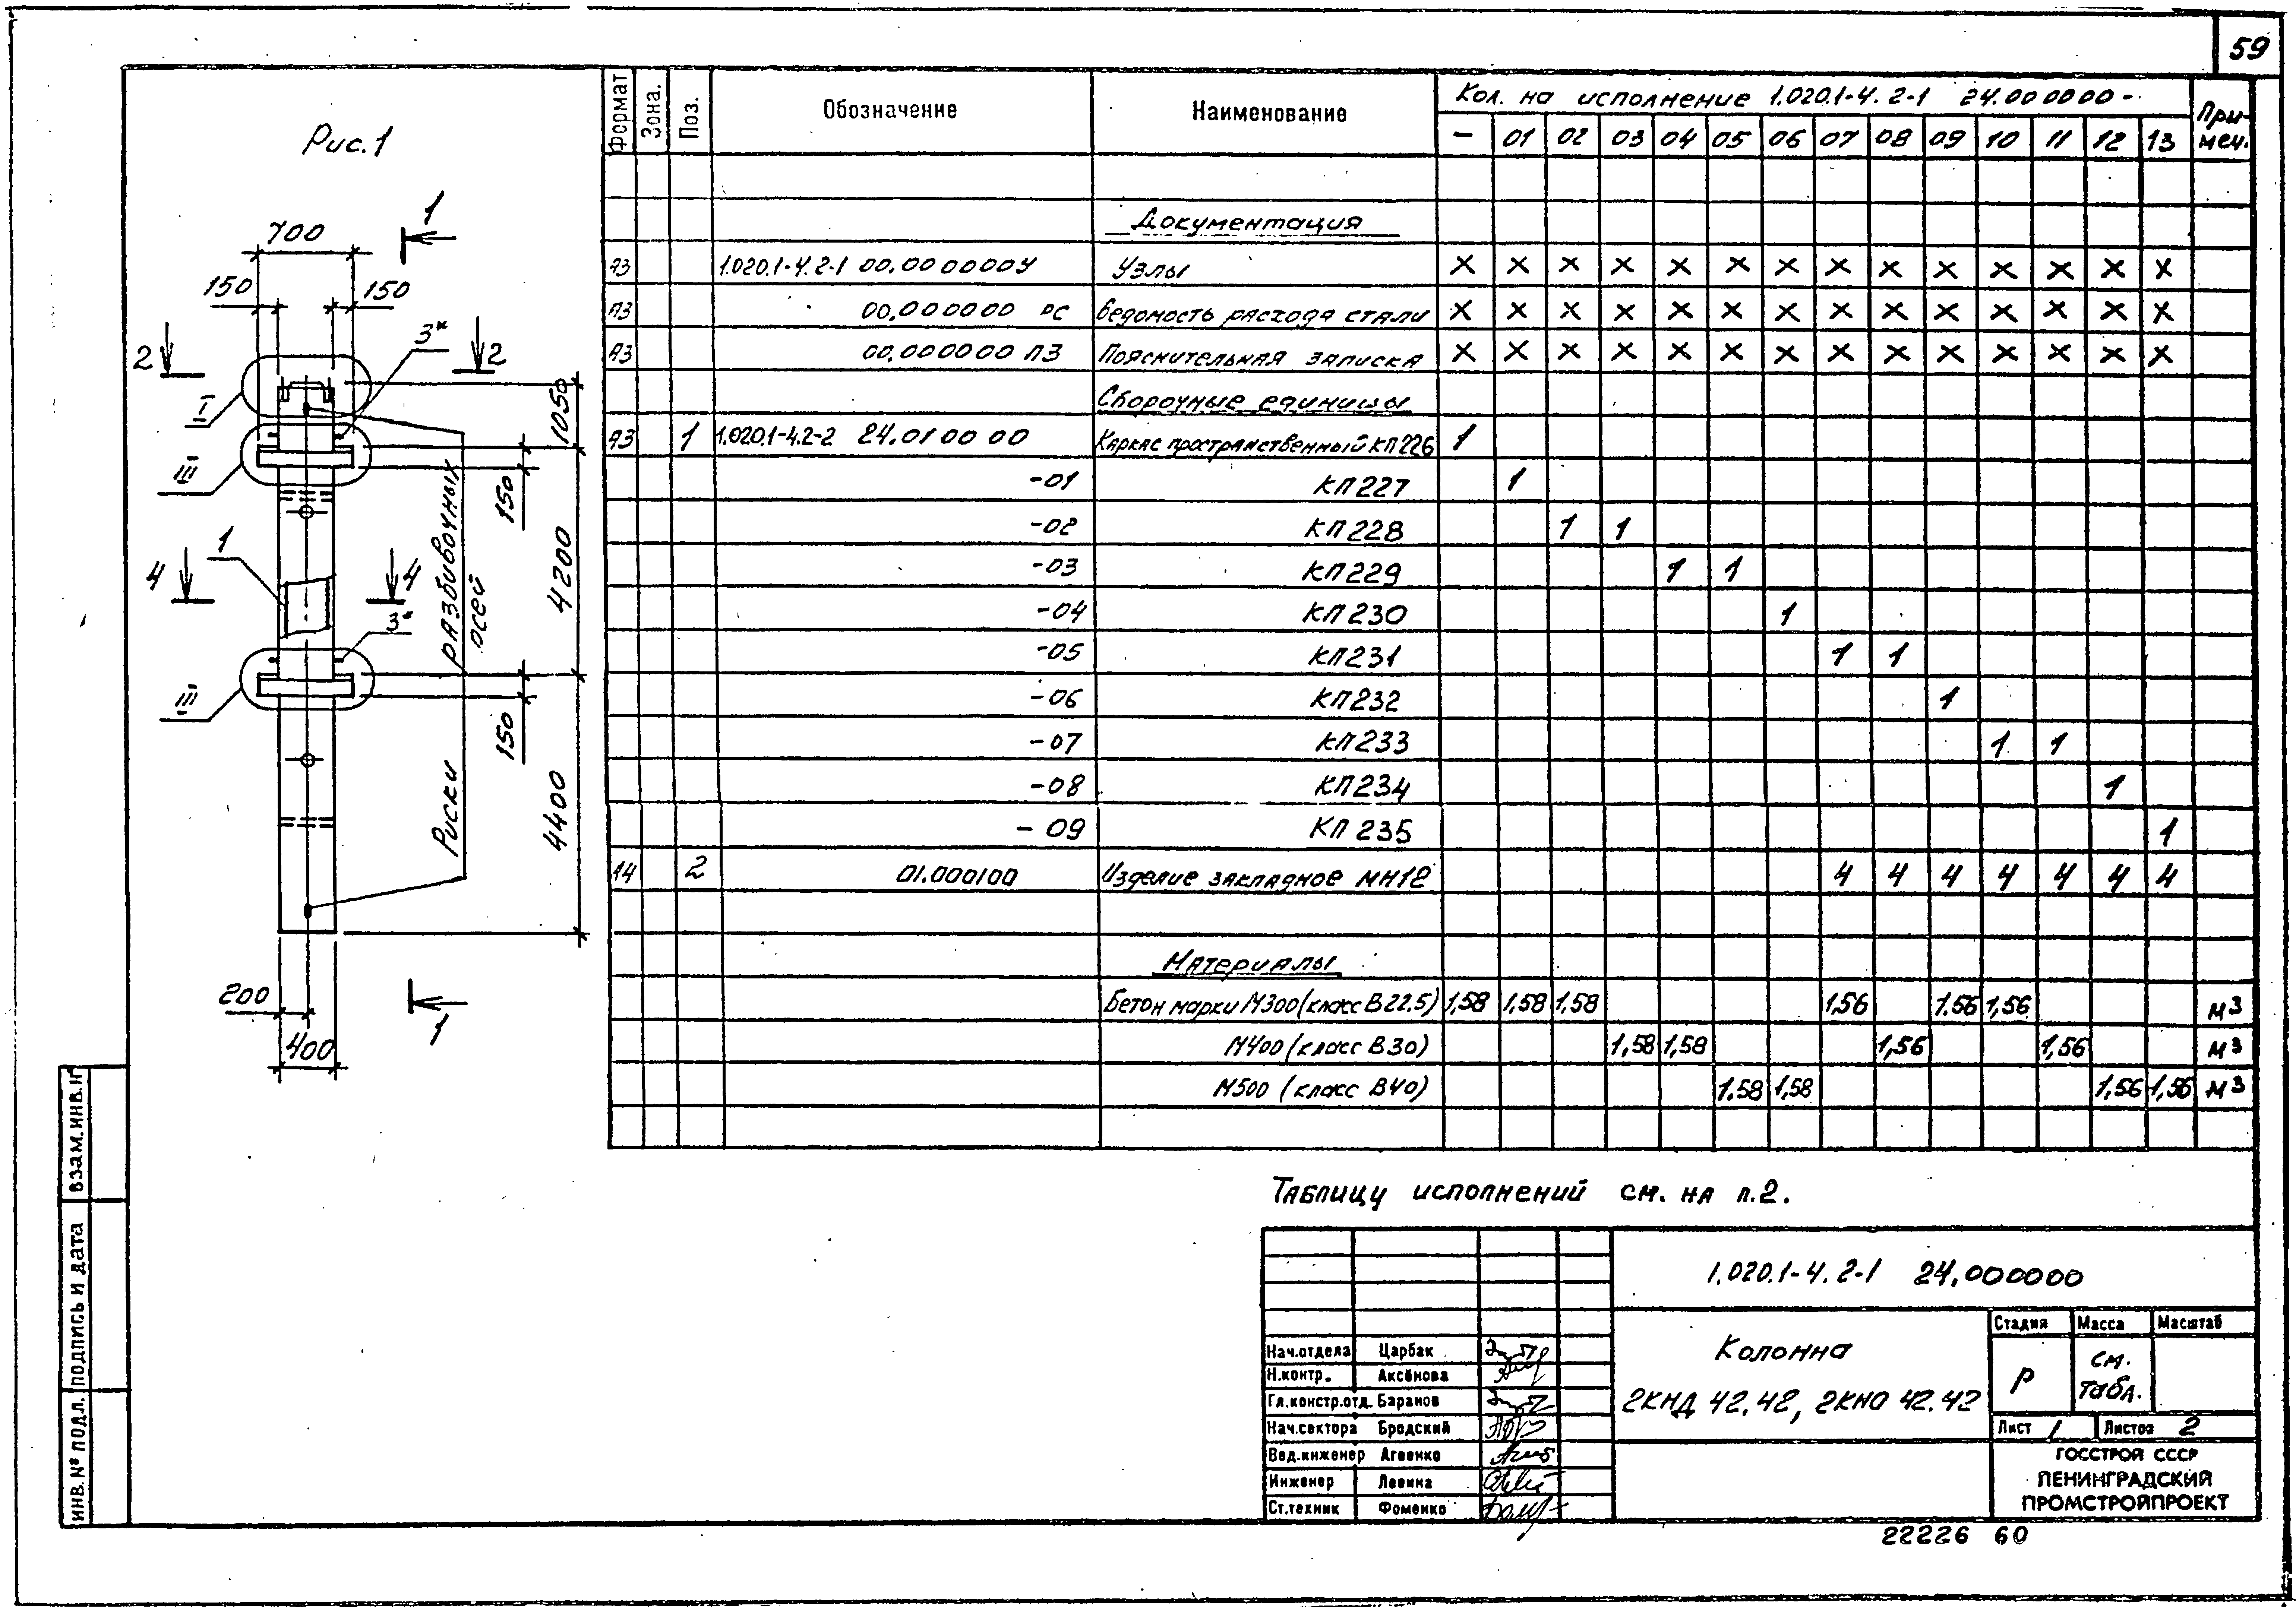 59
Рис.1
1
700
150 150
3*
2 2
I
1050
III
150
1
4 4
4200
3*
III
150
4400
Риски разбивочных осей
200
400
1
Формат Зона. Поз. Обозначение Наименование Кол. на исполнение 1.020.1-4.2-1 24.000000- Примеч.
— 01 02 03 04 05 06 07 08 09 10 11 12 13
Документация
А3 1.020.1-4.2-1 00.000000У Узлы X X X X X X X X X X X X X X
А3 00.000000 РС Ведомость расхода стали X X X X X X X X X X X X X X
А3 00.000000 ПЗ Пояснительная записка X X X X X X X X X X X X X X
Сборочные единицы
А3 1 1.020.1-4.2-2 24.010000 Каркас пространственный КП226 1
-01 КП227 1
-02 КП228 1 1
-03 КП229 1 1
-04 КП230 1
-05 КП231 1 1
-06 КП232 1
-07 КП233 1 1
-08 КП234 1
-09 КП235 1
А4 2 01.000100 Изделие закладное МН12 4 4 4 4 4 4 4
Материалы
Бетон марки М300 (класс В22.5) 1,58 1,58 1,58 1,56 1,56 1,56 м3
М400 (класс В30) 1,58 1,58 1,56 1,56 м3
М500 (класс В40) 1.58 1,58 1,56 1,56 м3
Таблицу исполнений см. на л.2.
1.020.1-4.2-1 24.000000
Колонна
2КНД 42.42, 2КНО 42.42
Стадия Масса Масштаб
Р см. табл.
Лист 1 Листов 2
ГОССТРОЙ СССР
ЛЕНИНГРАДСКИЙ
ПРОМСТРОЙПРОЕКТ
Нач.отдела Царбак
Н.контр. Аксёнова
Гл.констр.отд. Баранов
Нач.сектора Бродский
Вед.инженер Агеенко
Инженер Левина
Ст.техник Фоменко
ИНВ.№ ПОДЛ. ПОДПИСЬ И ДАТА ВЗАМ.ИНВ.№
22226 60